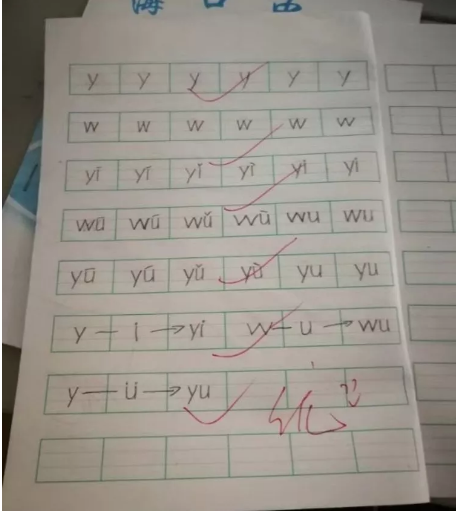 y y y y y y
w w w w w w
yī yí yǐ yì yi yi
wū wú wǔ wù wu wu
yū yú yǔ yù yu yu
y — i → yi w — u → wu
y — ü → yu
优